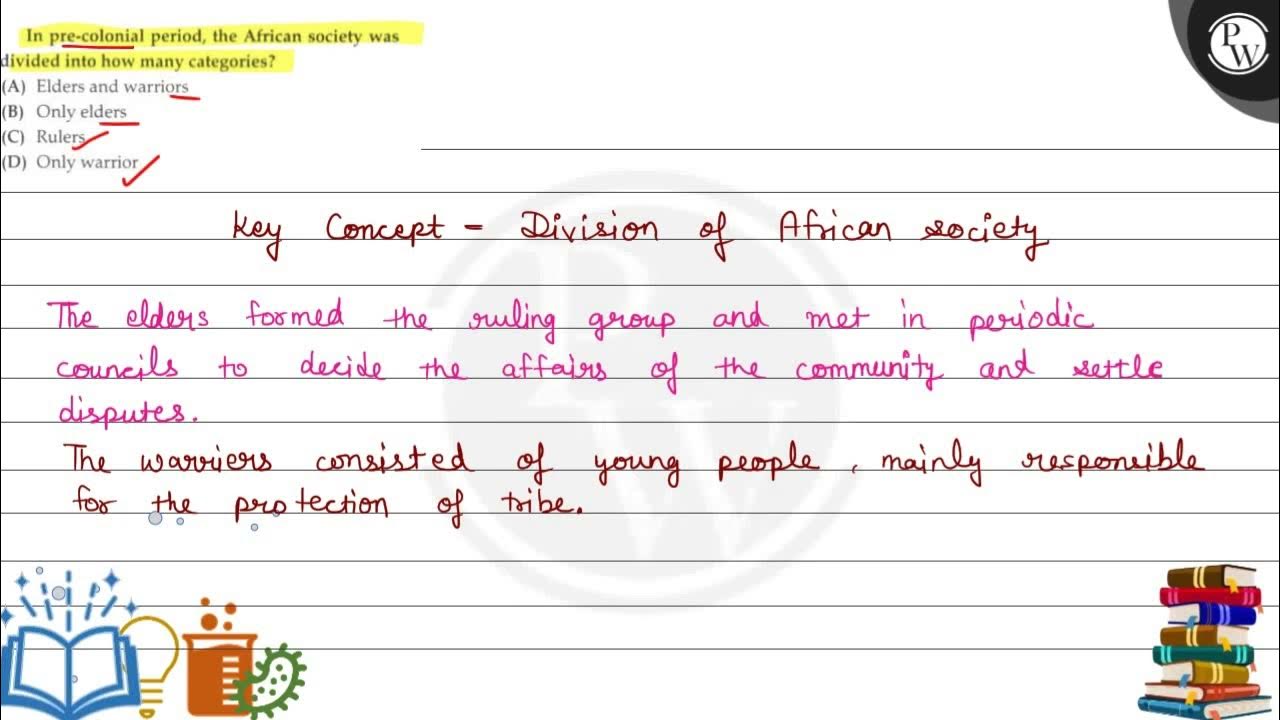 In pre-colonial period, the African society was
divided into how many categories?
(A) Elders and warriors
(B) Only elders
(C) Rulers
(D) Only warrior
P
W
Key Concept = Division of African society
The elders formed the ruling group and met in periodic
councils to decide the affairs of the community and settle
disputes.
The warriers consisted of young people, mainly responsible
for the protection of tribe.
P
W